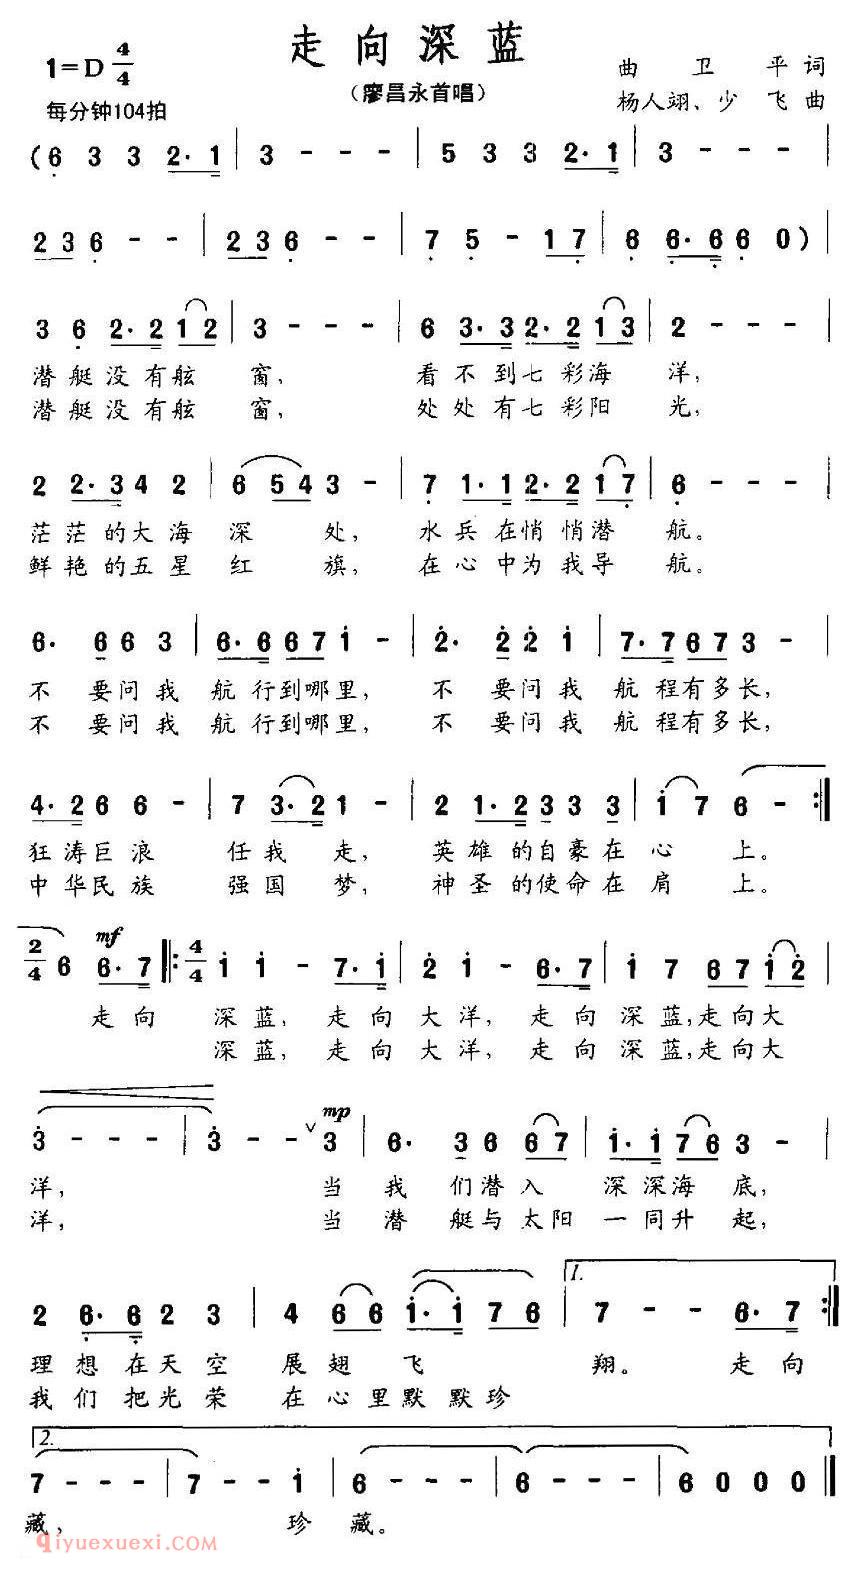 走向深蓝
1=D 4/4
(廖昌永首唱)
曲 卫 平 词
每分钟104拍
杨人翊、少 飞 曲
(6 3 3 2· 1 | 3 - - - | 5 3 3 2· 1 | 3 - - - |
2 3 6 - - | 2 3 6 - - | 7 5 - 1 7 | 6 6· 6 6 0) |
3 6 2· 2 1 2 | 3 - - - | 6 3· 3 2· 2 1 3 | 2 - - - |
潜艇没有舷 窗, 看不到七彩海 洋,
潜艇没有舷 窗, 处处有七彩阳 光,
2 2· 3 4 2 | 6 5 4 3 - | 7 1· 1 2· 2 1 7 | 6 - - - |
茫茫的大海 深 处, 水兵在悄悄潜 航。
鲜艳的五星 红 旗, 在心中为我导 航。
6· 6 6 3 | 6· 6 6 7 1 - | 2· 2 2 1 | 7· 7 6 7 3 - |
不 要问我 航行到哪里, 不 要问我 航程有多长,
不 要问我 航行到哪里, 不 要问我 航程有多长,
4· 2 6 6 - | 7 3· 2 1 - | 2 1· 2 3 3 3 | 1 7 6 - :|
狂涛巨浪 任我 走, 英雄的自豪在 心 上。
中华民族 强国 梦, 神圣的使命在 肩 上。
2/4 6 mf 6· 7 |: 4/4 1 1 - 7· 1 | 2 1 - 6· 7 | 1 7 6 7 1 2 |
走向 深蓝, 走向大洋, 走向深蓝,走向大
深蓝, 走向大洋, 走向深蓝,走向大
3 - - - | 3 - - ∨ mp 3 | 6· 3 6 6 7 | 1· 1 7 6 3 - |
洋, 当 我 们潜入 深深海 底,
洋, 当 潜 艇与太阳 一同升 起,
2 6· 6 2 3 | 4 6 6 1· 1 7 6 | 1. 7 - - 6· 7 :|
理想在天空 展翅 飞 翔。 走向
我们把光荣 在心里默默珍
2. 7 - - - | 7 - - 1 | 6 - - - | 6 - - - | 6 0 0 0 ||
藏, 珍 藏。
qiyuexuexi.com